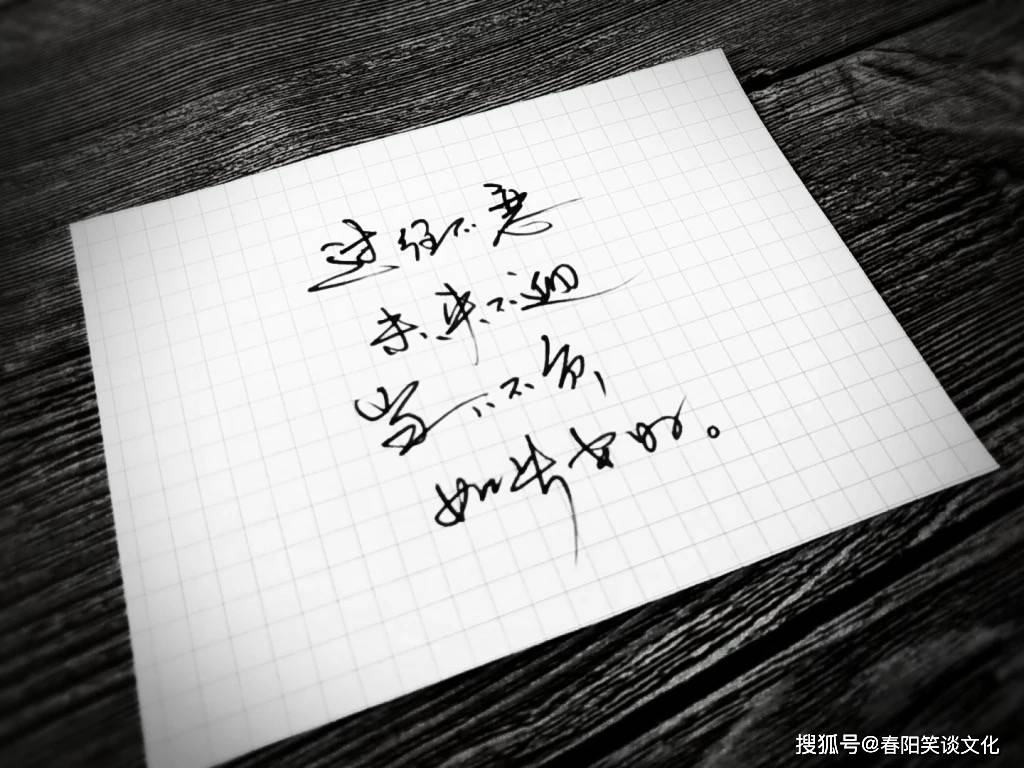 过往不恋
未来不迎
当下不负
如此安好。
搜狐号@春阳笑谈文化